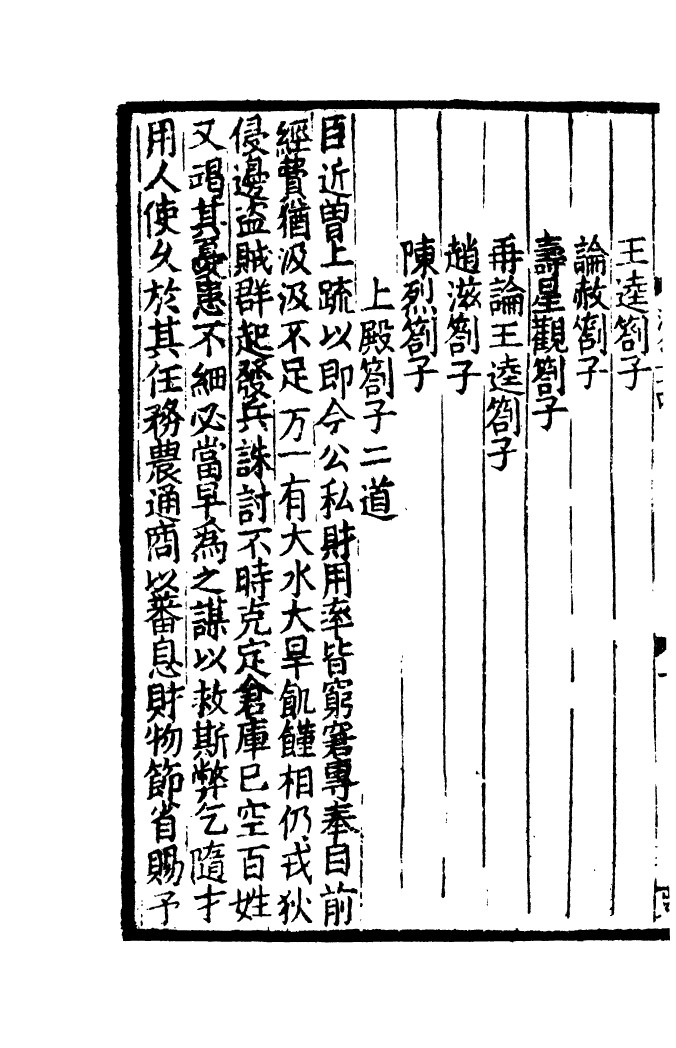 王逵劄子
論赦劄子
壽星觀劄子
再論王逵劄子
趙滋劄子
陳烈劄子
上殿劄子二道
臣近曽上䟽以即今公私財用率皆窮窘專奉目前
經費猶汲汲不足万一有大水大旱飢饉相仍戎狄
侵邊盗賊群起發兵誅討不時克定倉庫已空百姓
又竭其憂患不細必當早爲之謀以救斯弊乞隨才
用人使久於其任務農通商以蕃息財物節省賜予